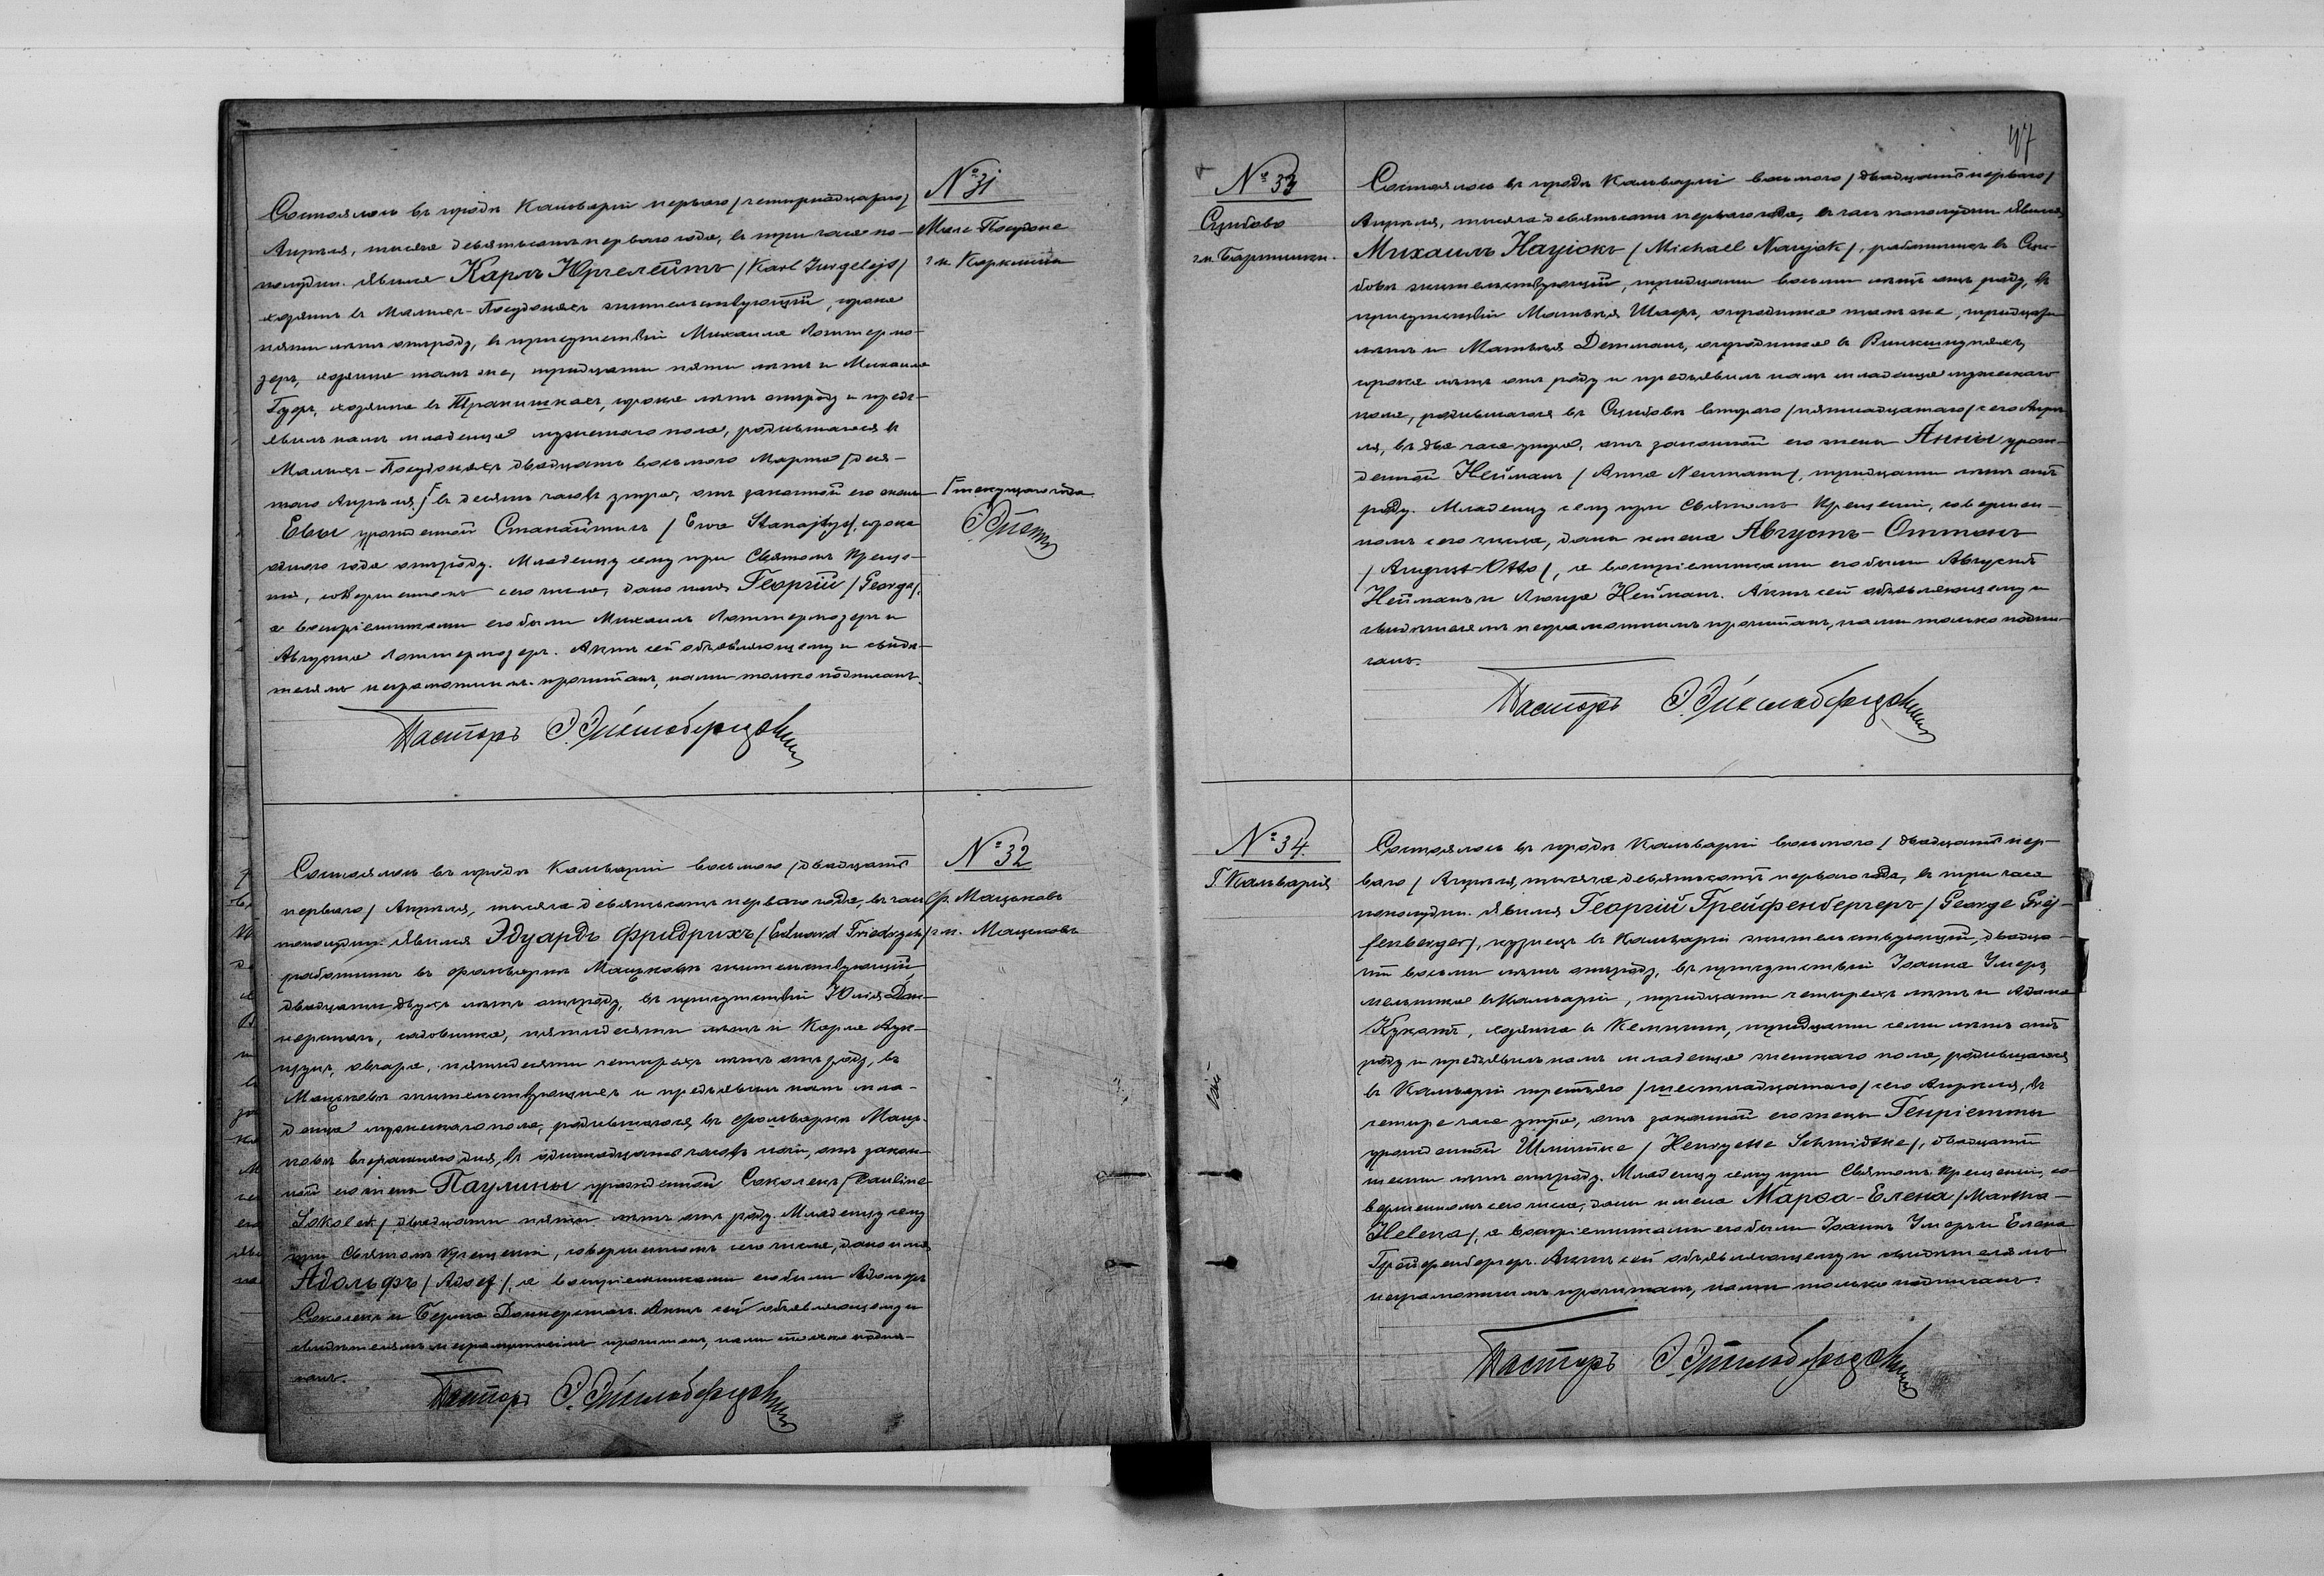 № 31
Мале Посудоне
г.н. Кирклины
Состоялось въ городѣ Кальваріи перваго /четырнадцатаго/
Апрѣля, тысяча девятьсотъ перваго года, въ три часа по-
полудни. Явился Карлъ Юргелейтъ /Karl Jurgelejt/
хозяинъ въ Малыхъ-Посудоняхъ жительствующій, сорока
пяти лѣтъ отъ роду, въ присутствіи Михаила Лоттермо-
зеръ, хозяина тамъ же, тридцати пяти лѣтъ и Михаила
Гузъ, хозяина въ Тракишкахъ, сорока лѣтъ отъ роду и предъ-
явилъ намъ младенца мужескаго пола, родившагося въ
Малыхъ-Посудоняхъ двадцать восьмого Марта /деся-
таго Апрѣля/ въ десять часовъ утра, отъ законной его жены
текущаго года
Евы урожденной Станайтисъ /Ewa Stanajtys/, сорока
одного года отъ роду. Младенцу сему при Святомъ Креще-
ніи, совершенномъ сего числа, дано имя Георгій /George/,
а воспріемниками его были Михаилъ Лоттермозеръ и
Августа Лоттермозеръ. Актъ сей объявляющему и свидѣ-
телямъ неграмотнымъ прочитанъ, нами только подписанъ.
Пасторъ
№ 32
ф. Мацьково
г.н. Мацьковъ
Состоялось въ городѣ Кальваріи восьмого /двадцать
перваго/ Апрѣля, тысяча девятьсотъ перваго года, въ часъ
пополудни. Явился Эдуардъ Фридрихъ /Eduard Friedrych/
работникъ въ фольваркѣ Мацьковѣ жительствующій
двадцати двухъ лѣтъ отъ роду, въ присутствіи Юлія Дан-
нерманъ, садовника, пятидесяти лѣтъ и Карла
овчара, пятидесяти четырехъ лѣтъ отъ роду, въ
Мацьковѣ жительствующихъ и предъявилъ намъ мла-
денца мужескаго пола, родившагося въ фольваркѣ Маць-
ковѣ вчерашняго дня, въ одиннадцать часовъ ночи, отъ закон-
ной его жены Паулины урожденной Соколекъ /Pauline
Sokolek/ двадцати пяти лѣтъ отъ роду. Младенцу сему
при Святомъ Крещеніи, совершенномъ сего числа, дано имя
Адольфъ /Adolf/, а воспріемниками его были Адольфъ
Соколекъ и Берта Даннерманъ. Актъ сей объявляющему и
свидѣтелямъ неграмотнымъ прочитанъ, нами только подпи-
санъ.
Пасторъ
47
№ 33
Сцибово
г.н. Бартники.
Состоялось въ городѣ Кальваріи восьмого /двадцать перваго/
Апрѣля, тысяча девятьсотъ перваго года, въ часъ пополудни. Явился
Михаилъ Науіокъ /Michael Naujok/, работникъ въ Сци-
бовѣ жительствующій, тридцати восьми лѣтъ отъ роду, въ
присутствіи Матвѣя Шаръ, огородника тамъ же, тридцати
лѣтъ и Матвѣя Детманъ, огородника въ
сорока лѣтъ отъ роду и предъявилъ намъ младенца мужескаго
пола, родившагося въ Сцибовѣ второго /пятнадцатаго/ сего Апрѣ-
ля, въ два часа утра, отъ законной его жены Анны урож-
денной Нейманъ /Anna Neumann/, тридцати лѣтъ отъ
роду. Младенцу сему при Святомъ Крещеніи, совершен-
номъ сего числа, даны имена Августъ-Оттонъ
/August-Otto/, а воспріемниками его были Августъ
Нейманъ и Луиза Нейманъ. Актъ сей объявляющему и
свидѣтелямъ неграмотнымъ прочитанъ, нами только подпи-
санъ.
Пасторъ
№ 34.
Г. Кальварія
Состоялось въ городѣ Кальваріи восьмого /двадцать пер-
ваго/ Апрѣля, тысяча девятьсотъ перваго года, въ три часа
пополудни. Явился Георгій Грейфенбергеръ /George Grej-
fenberger/, кузнецъ въ Кальваріи жительствующій, двадца-
ти восьми лѣтъ отъ роду, въ присутствіи Іоанна Умеръ,
мельника въ Кальваріи, тридцати четырехъ лѣтъ и Адама
Кукатъ, хозяина въ тридцати семи лѣтъ отъ
роду и предъявилъ намъ младенца женскаго пола, родившагося
въ Кальваріи третьяго /шестнадцатаго/ сего Апрѣля, въ
четыре часа утра, отъ законной его жены Генріетты
урожденной Шмитке /Henryette Schmidtke/, двадцати
шести лѣтъ отъ роду. Младенцу сему при Святомъ Крещеніи, со-
вершенномъ сего числа, даны имена Марѳа-Елена /Martha-
Helena/, а воспріемниками его были Іоаннъ Умеръ и Елена
Грейфенбергеръ. Актъ сей объявляющему и свидѣтелямъ
неграмотнымъ прочитанъ, нами только подписанъ.
Пасторъ